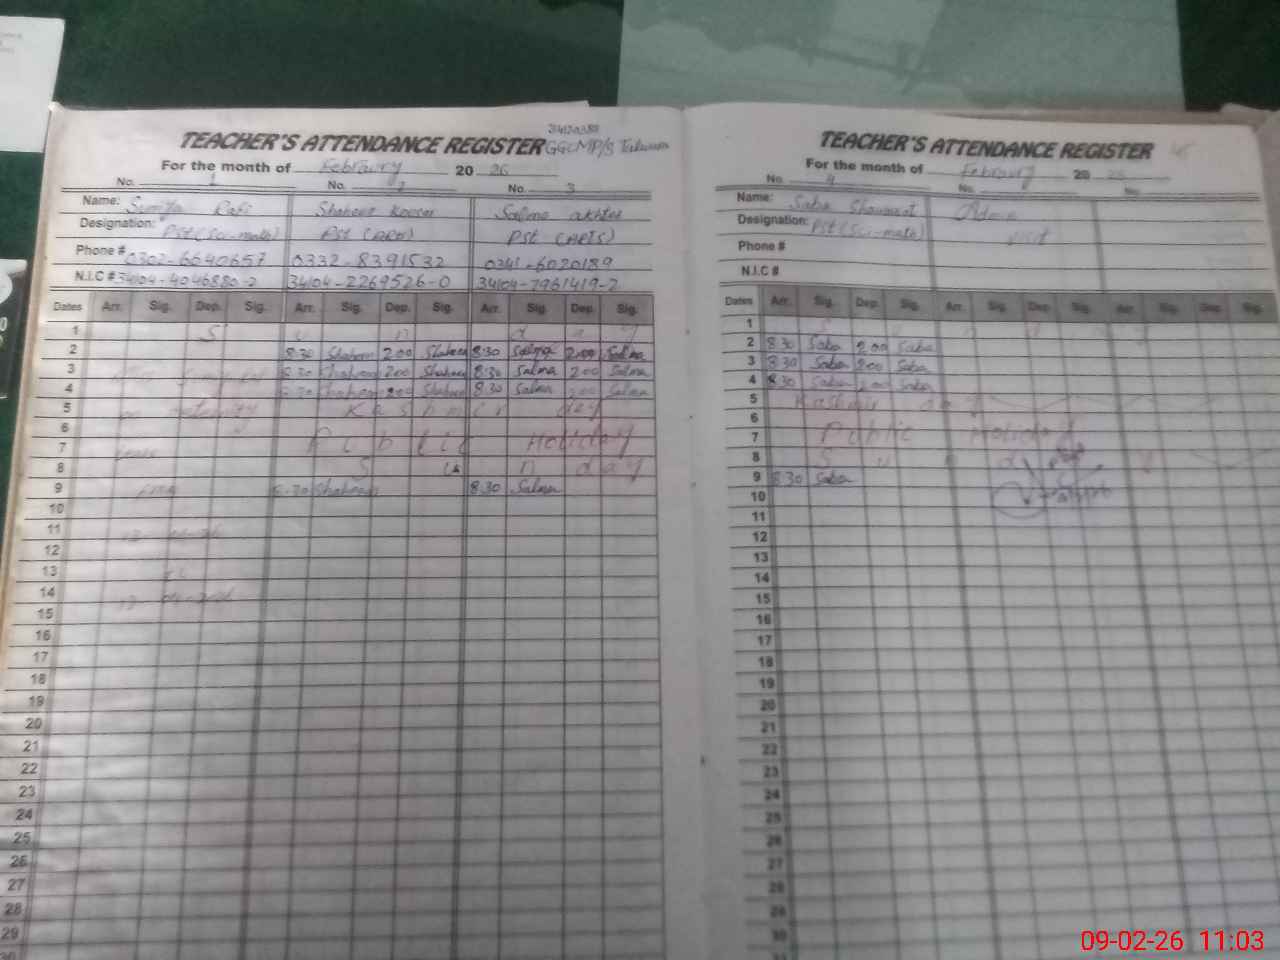 TEACHER'S ATTENDANCE REGISTER
GGCMP/S
For the month of February 20 26
No. 1 No. 2 No. 3
Name: Rafi Shaheen Kosar Salma akhtar
Designation: Pst (Sci-math) Pst (Arts) Pst (ARTS)
Phone # 0302-6640657 0332-8391532 0341-6020189
N.I.C # 34104-4046880-2 34104-2269526-0 34104-7961419-2
Dates Arr. Sig. Dep. Sig. Arr. Sig. Dep. Sig. Arr. Sig. Dep. Sig.
1 S u n d a y
2 8:30 Shaheen 2:00 Shaheen 8:30 Salma 2:00 Salma
3 8:30 Shaheen 2:00 Shaheen 8:30 Salma 2:00 Salma
4 8:30 Shaheen 2:00 Shaheen 8:30 Salma 2:00 Salma
5 on maternity Kashmir day
6
7 leave Public Holiday
8 S u n d a y
9 8:30 Shaheen 8:30 Salma
10
11
12
13 to
14
15
16
17
18
19
20
21
22
23
24
25
26
27
28
29
30
TEACHER'S ATTENDANCE REGISTER
For the month of February 20 26
No. 4 No. No.
Name: Saba Shaukat Admin
Designation: Pst (Sci-math) visit
Phone #
N.I.C #
Dates Arr. Sig. Dep. Sig. Arr. Sig. Dep. Sig. Arr. Sig. Dep. Sig.
1 S u n d a y
2 8:30 Saba 2:00 Saba
3 8:30 Saba 2:00 Saba
4 8:30 Saba 2:00 Saba
5 Kashmir day
6
7 Public Holiday
8 S u n d a y
9 8:30 Saba
10
11
12
13
14
15
16
17
18
19
20
21
22
23
24
25
26
27
28
29
30
09-02-26 11:03